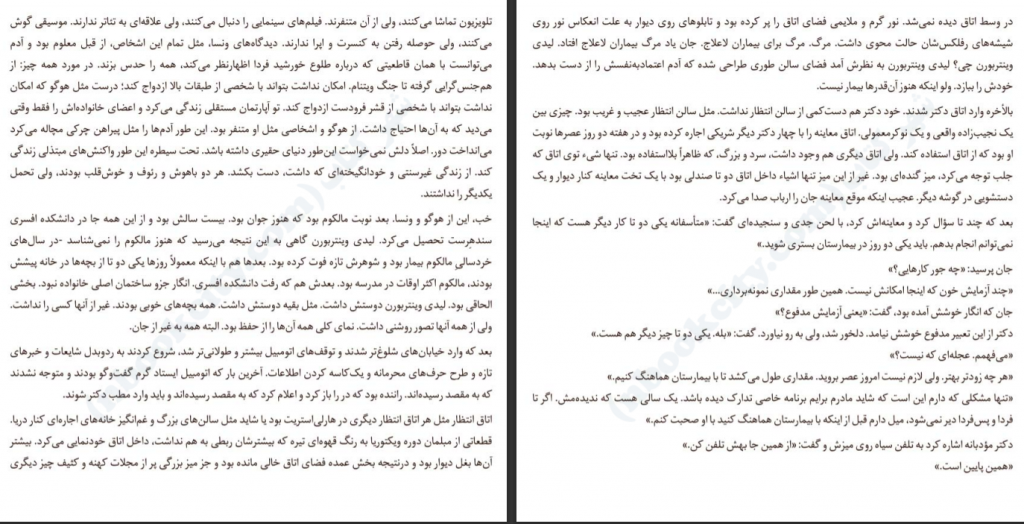 تلویزیون تماشا می‌کنند، ولی از آن متنفرند. فیلم‌های سینمایی را دنبال می‌کنند، ولی علاقه‌ای به تئاتر ندارند. موسیقی گوش
می‌کنند، ولی حوصله رفتن به کنسرت و اپرا ندارند. دیدگاه‌های ونسا، مثل تمام این اشخاص، از قبل معلوم بود و آدم
می‌توانست با همان قاطعیتی که درباره طلوع خورشید فردا اظهارنظر می‌کند، همه را حدس بزند. در مورد همه چیز: از
هم‌جنس‌گرایی گرفته تا جنگ ویتنام. امکان نداشت بتواند با شخصی از طبقات بالا ازدواج کند؛ درست مثل هوگو که امکان
نداشت بتواند با شخصی از قشر فرودست ازدواج کند. تو آپارتمان مستقلی زندگی می‌کرد و اعضای خانواده‌اش را فقط وقتی
می‌دید که به آن‌ها احتیاج داشت. از هوگو و اشخاصی مثل او متنفر بود. این طور آدم‌ها را مثل پیراهن چرکی مچاله می‌کرد
می‌انداخت دور. اصلاً دلش نمی‌خواست این‌طور دنیای حقیری داشته باشد. تحت سیطره این طور واکنش‌های مبتذلی زندگی
کند. از زندگی غیرسنتی و خودانگیخته‌ای که داشت، دست بکشد. هر دو باهوش و رئوف و خوش‌قلب بودند، ولی تحمل
یکدیگر را نداشتند.
خب، این از هوگو و ونسا. بعد نوبت مالکوم بود که هنوز جوان بود. بیست سالش بود و از این همه جا در دانشکده افسری
سندهرست تحصیل می‌کرد. لیدی وینتربورن گاهی به این نتیجه می‌رسید که هنوز مالکوم را نمی‌شناسد -در سال‌های
خردسالی مالکوم بیمار بود و شوهرش تازه فوت کرده بود. بعدها هم با اینکه معمولاً روزها یکی دو تا از بچه‌ها در خانه پیشش
بودند، مالکوم اکثر اوقات در مدرسه بود. بعدش هم که رفت دانشکده افسری. انگار جزو ساختمان اصلی خانواده نبود. بخشی
الحاقی بود. لیدی وینتربورن دوستش داشت. مثل بقیه دوستش داشت. همه بچه‌های خوبی بودند. غیر از آنها کسی را نداشت.
ولی از همه آنها تصور روشنی داشت. نمای کلی همه آن‌ها را از حفظ بود. البته همه به غیر از جان.
بعد که وارد خیابان‌های شلوغ‌تر شدند و توقف‌های اتومبیل بیشتر و طولانی‌تر شد، شروع کردند به ردوبدل شایعات و خبرهای
تازه و طرح حرف‌های محرمانه و یک‌کاسه کردن اطلاعات. آخرین بار که اتومبیل ایستاد گرم گفت‌وگو بودند و متوجه نشدند
که به مقصد رسیده‌اند. راننده بود که در را باز کرد و اعلام کرد که به مقصد رسیده‌اند و باید وارد مطب دکتر شوند.
اتاق انتظار مثل هر اتاق انتظار دیگری در هارلی‌استریت بود یا شاید مثل سالن‌های بزرگ و غم‌انگیز خانه‌های اجاره‌ای کنار دریا.
قطعاتی از مبلمان دوره ویکتوریا به رنگ قهوه‌ای تیره که بیشترشان ربطی به هم نداشت، داخل اتاق خودنمایی می‌کرد. بیشتر
آن‌ها بغل دیوار بود و درنتیجه بخش عمده فضای اتاق خالی مانده بود و جز میز بزرگی پر از مجلات کهنه و کثیف چیز دیگری
در وسط اتاق دیده نمی‌شد. نور گرم و ملایمی فضای اتاق را پر کرده بود و تابلوهای روی دیوار به علت انعکاس نور روی
شیشه‌های رفلکس‌شان حالت محوی داشت. مرگ. مرگ برای بیماران لاعلاج. جان یاد مرگ بیماران لاعلاج افتاد. لیدی
وینتربورن چی؟ لیدی وینتربورن به نظرش آمد فضای سالن طوری طراحی شده که آدم اعتمادبه‌نفسش را از دست بدهد.
خودش را ببازد. ولو اینکه هنوز آن‌قدرها بیمار نیست.
بالأخره وارد اتاق دکتر شدند. خود دکتر هم دست‌کمی از سالن انتظار نداشت. مثل سالن انتظار عجیب و غریب بود. چیزی بین
یک نجیب‌زاده واقعی و یک نوکرمعمولی. اتاق معاینه را با چهار دکتر دیگر شریکی اجاره کرده بود و در هفته دو روز عصرها نوبت
او بود که از اتاق استفاده کند. ولی اتاق دیگری هم وجود داشت، سرد و بزرگ، که ظاهراً بلااستفاده بود. تنها شیء توی اتاق که
جلب توجه می‌کرد، میز گنده‌ای بود. غیر از این میز تنها اشیاء داخل اتاق دو تا صندلی بود با یک تخت معاینه کنار دیوار و یک
دستشویی در گوشه دیگر. عجیب اینکه موقع معاینه جان را ارباب صدا می‌کرد.
بعد که چند تا سؤال کرد و معاینه‌اش کرد، با لحن جدی و سنجیده‌ای گفت: «متأسفانه یکی دو تا کار دیگر هست که اینجا
نمی‌توانم انجام بدهم. باید یکی دو روز در بیمارستان بستری شوید.»
جان پرسید: «چه جور کارهایی؟»
«چند آزمایش خون که اینجا امکانش نیست. همین طور مقداری نمونه‌برداری...»
جان که انگار خوشش آمده بود، گفت: «یعنی آزمایش مدفوع؟»
دکتر از این تعبیر مدفوع خوشش نیامد. دلخور شد، ولی به رو نیاورد. گفت: «بله. یکی دو تا چیز دیگر هم هست.»
«می‌فهمم. عجله‌ای که نیست؟»
«هر چه زودتر بهتر. ولی لازم نیست امروز عصر بروید. مقداری طول می‌کشد تا با بیمارستان هماهنگ کنیم.»
«تنها مشکلی که دارم این است که شاید مادرم برایم برنامه خاصی تدارک دیده باشد. یک سالی هست که ندیده‌مش. اگر تا
فردا و پس‌فردا دیر نمی‌شود، میل دارم قبل از اینکه با بیمارستان هماهنگ کنید با او صحبت کنم.»
دکتر مؤدبانه اشاره کرد به تلفن سیاه روی میزش و گفت: «از همین جا بهش تلفن کن.»
«همین پایین است.»